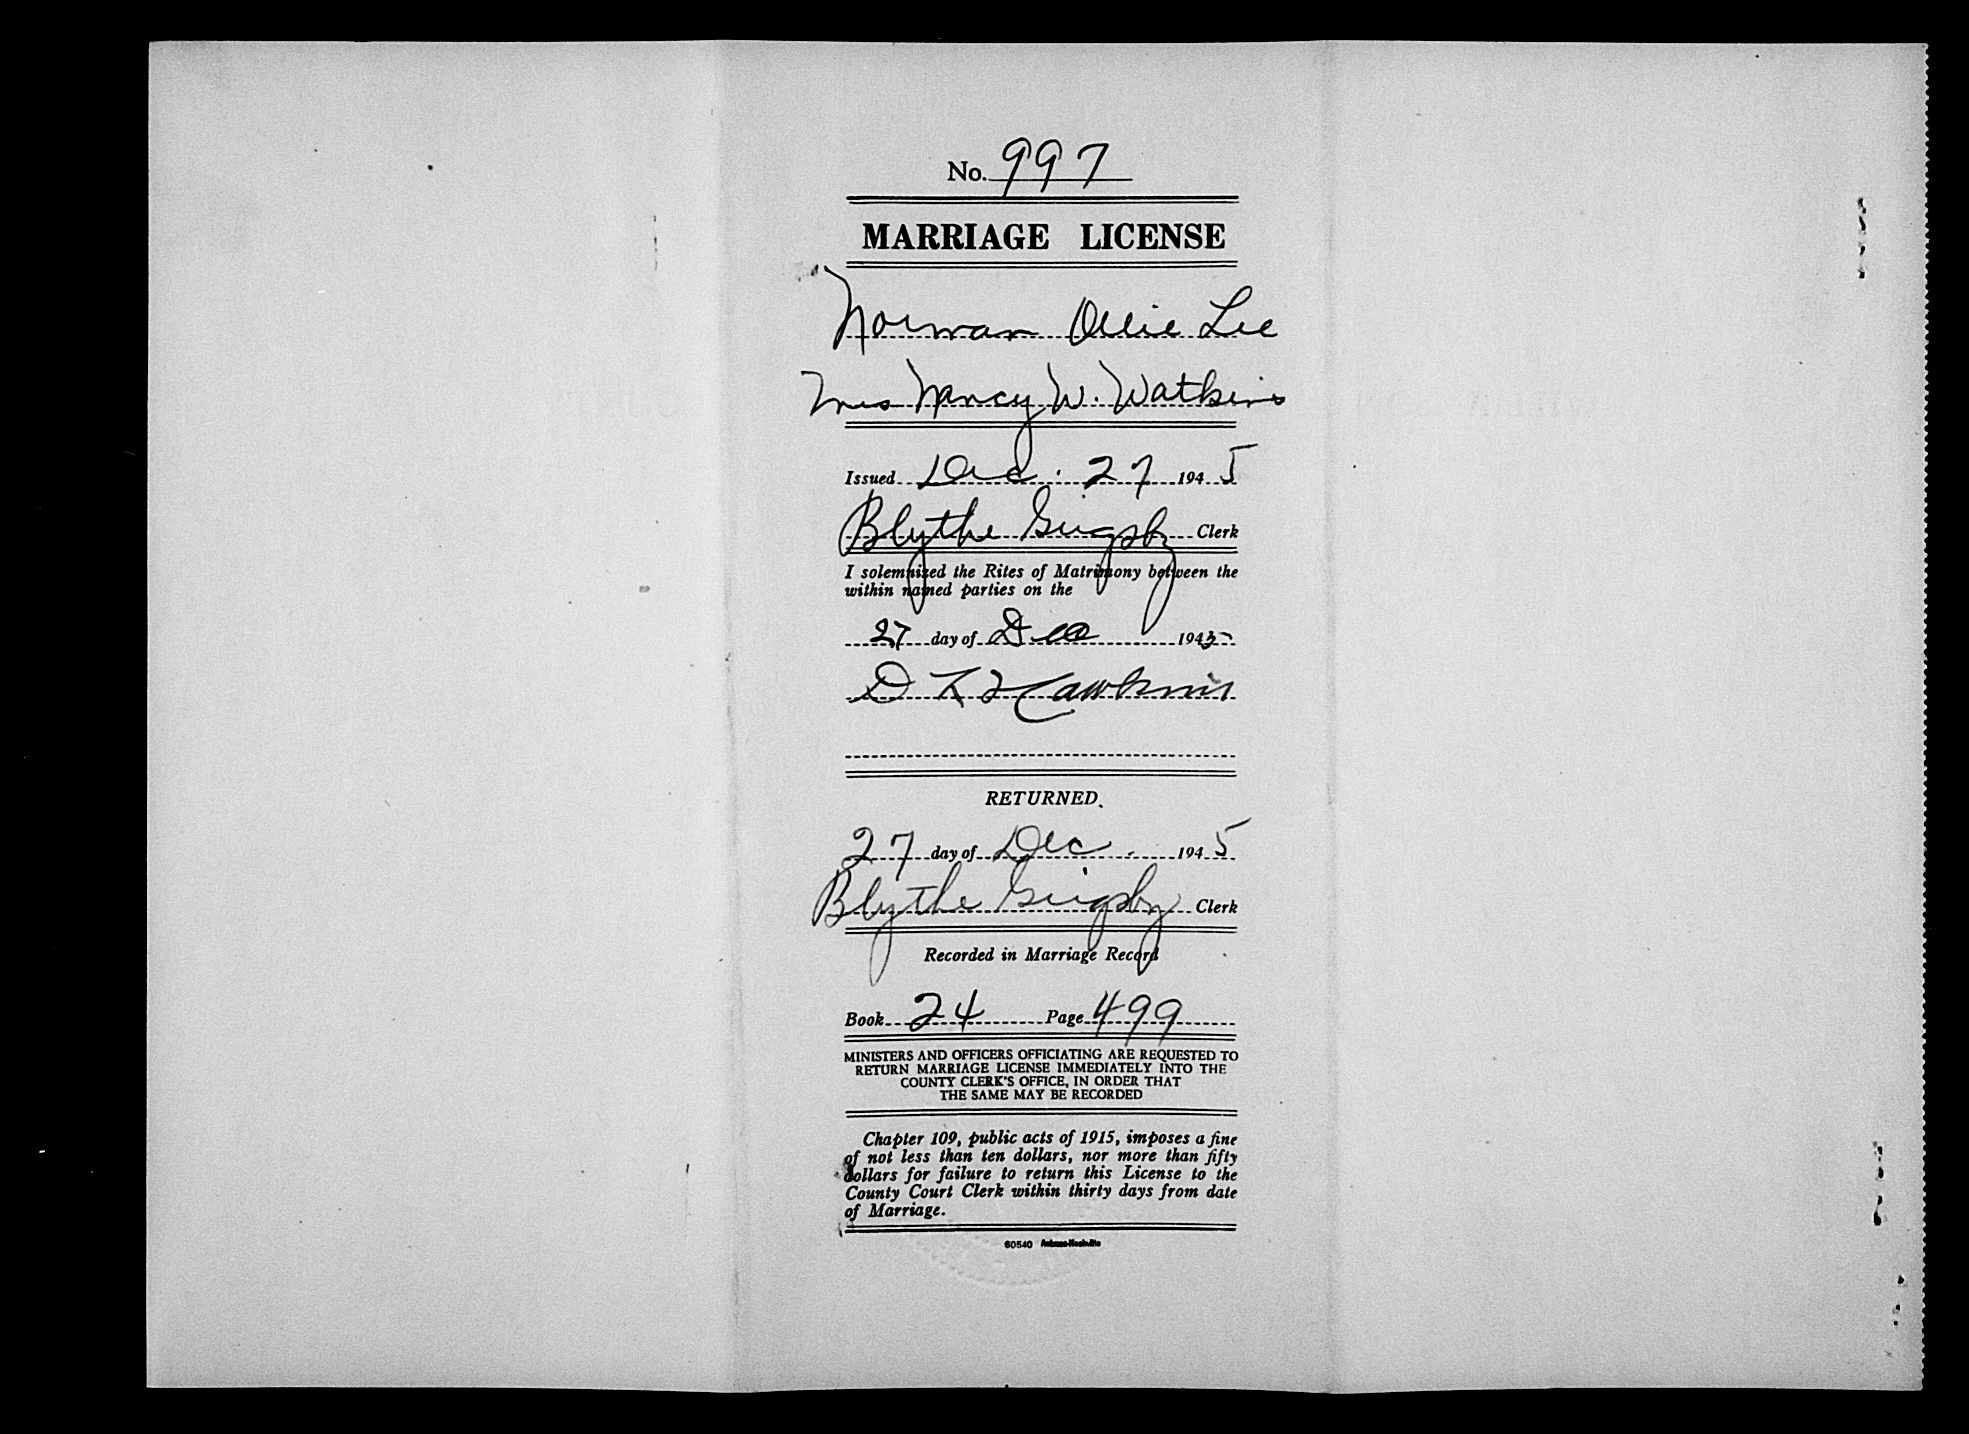 No. 997
MARRIAGE LICENSE
Norman Ollie Lee
Mrs Nancy W. Watkins
Issued Dec. 27 1945
Blythe Grigsby Clerk
I solemnized the Rites of Matrimony between the
within named parties on the
27 day of Dec 1945
D Hawkins
RETURNED.
27 day of Dec. 1945
Blythe Grigsby Clerk
Recorded in Marriage Record
Book 24 Page 499
MINISTERS AND OFFICERS OFFICIATING ARE REQUESTED TO
RETURN MARRIAGE LICENSE IMMEDIATELY INTO THE
COUNTY CLERK'S OFFICE, IN ORDER THAT
THE SAME MAY BE RECORDED
Chapter 109, public acts of 1915, imposes a fine
of not less than ten dollars, nor more than fifty
dollars for failure to return this License to the
County Court Clerk within thirty days from date
of Marriage.
60540